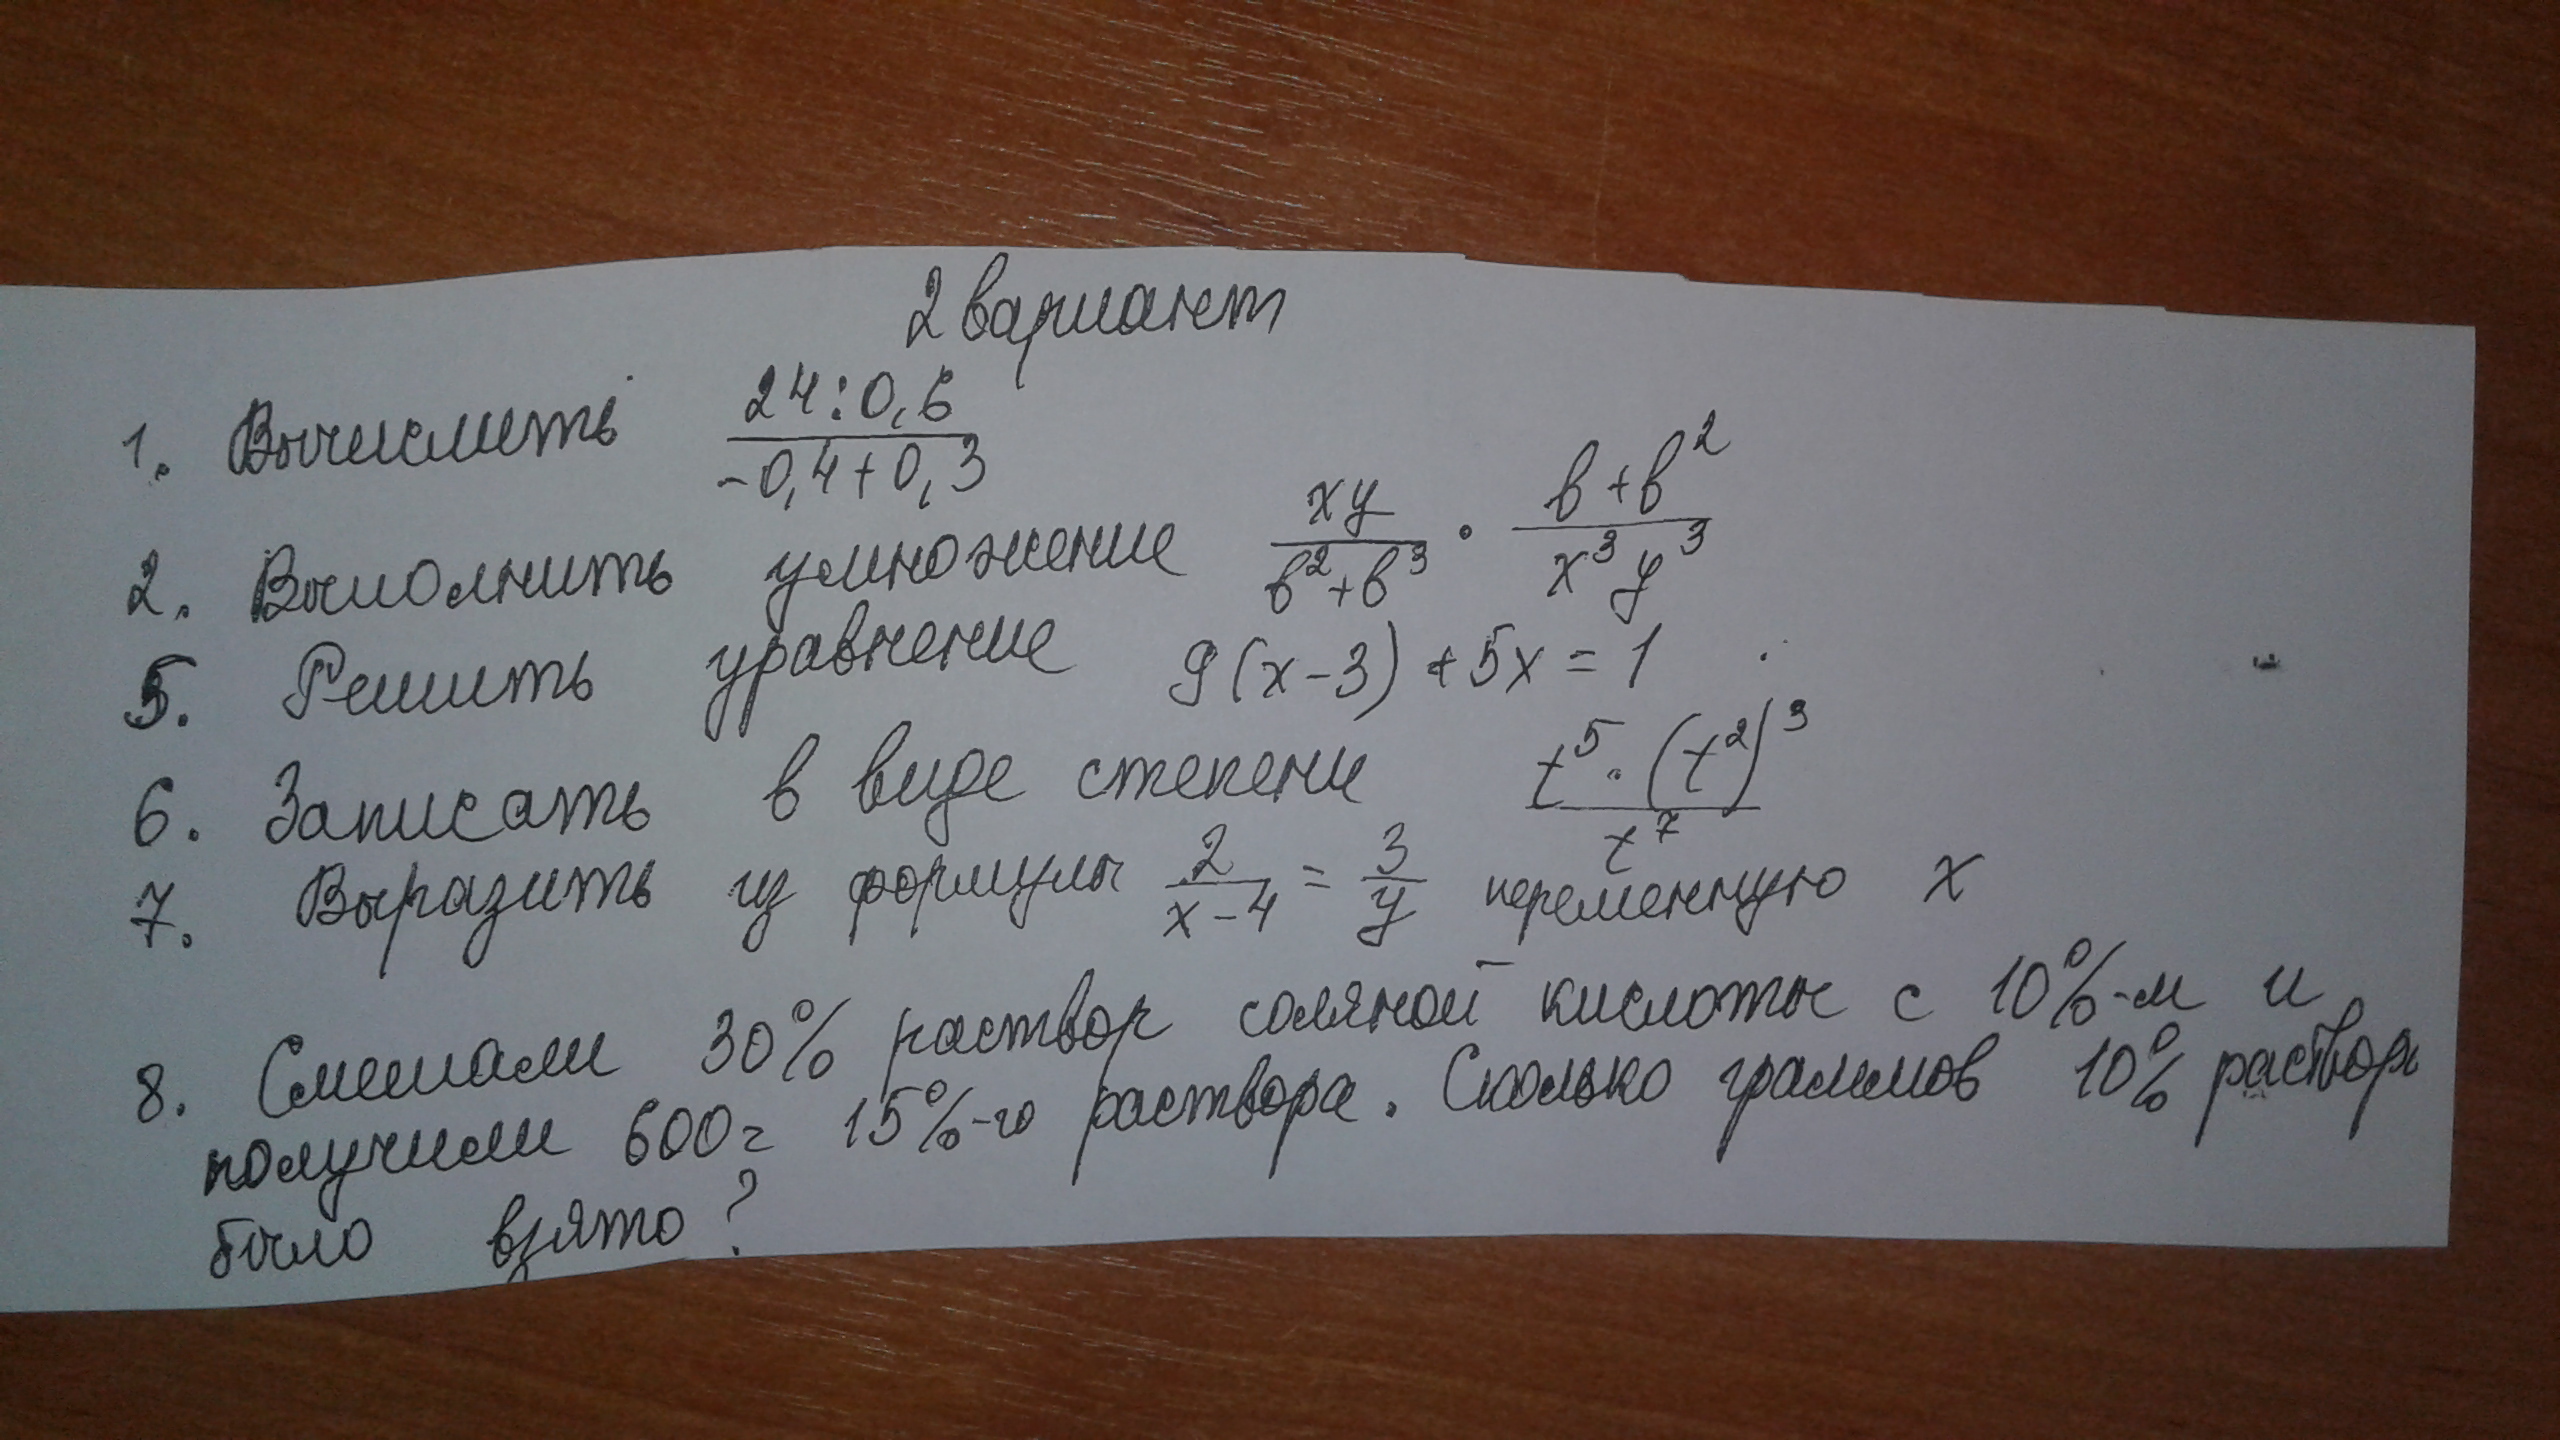 2 вариант
1. Вычислить (24:0,6)/(-0,4+0,3)
2. Выполнить умножение xy/(b²+b³) · (b+b²)/(x³y³)
5. Решить уравнение 9(x-3)+5x=1
6. Записать в виде степени (t⁵·(t²)³)/t⁷
7. Выразить из формулы 2/(x-4) = 3/y переменную x
8. Смешали 30% раствор соляной кислоты с 10%-м и
получили 600г 15%-го раствора. Сколько граммов 10% раствора
было взято?